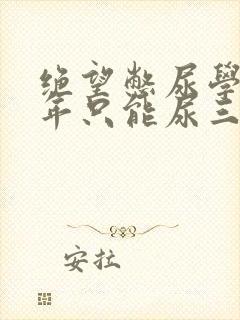 绝望憋尿學
年只能尿三
安拉